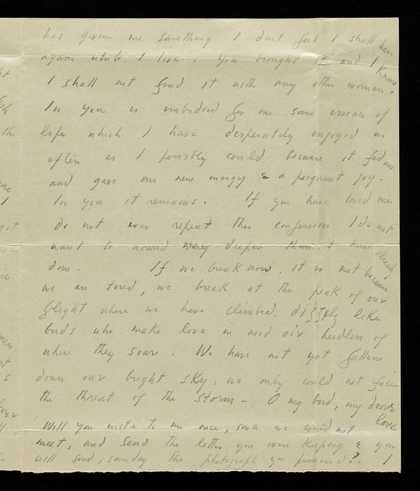 has given me something I don't feel I shall have
again while I live. You brought it and I know
I shall not find it with any other woman.
In you is embodied for me some essence of
life which I have desperately enjoyed as
often as I possibly could because it fed me
and gave me new energy & a poignant joy.
In you it remains. If you have loved me
Do not ever repeat this confession I do not
want to wound deeper than I have already
done. If we break now, it is not because
we are tired, we break at the peak of our
flight where we have climbed, dizzily like
birds who make love in mid air heedless of
where they soar. We have not yet fallen
down our bright sky, we only could not face
the threat of the storm — O my bird, my dove
love
Will you write to me once, since we could not
meet, and send the letter you were keeping & you
will send, someday the photograph you promised? I